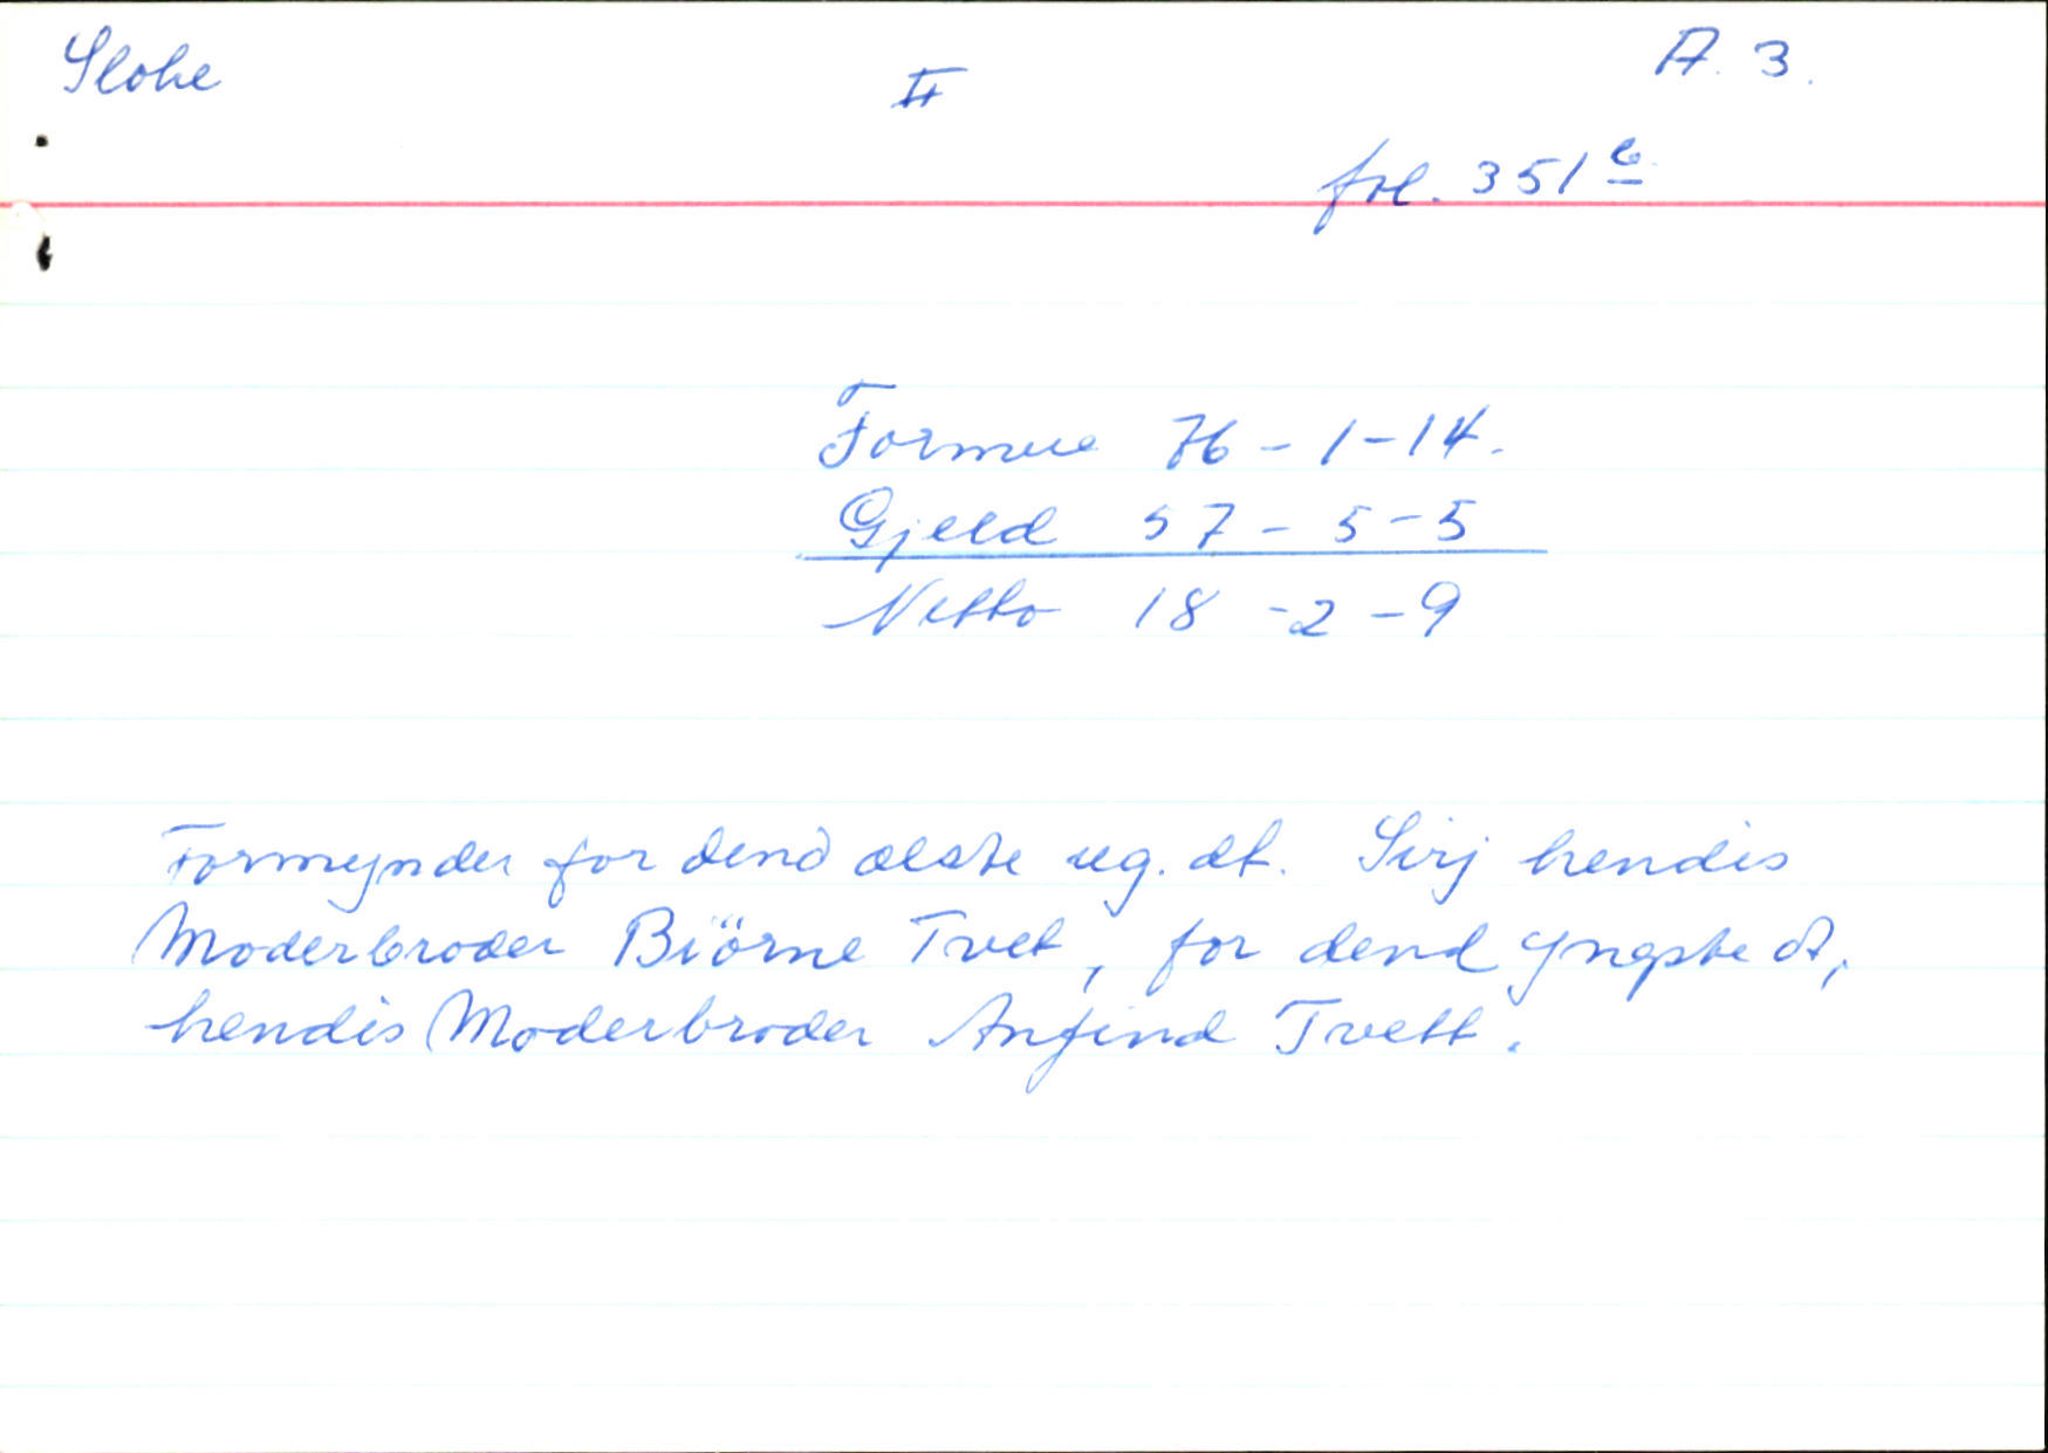 Slohe
II
A. 3.
fol. 351 b
Formue 76 - 1 - 14.
Gjeld 57 - 5 - 5
Netto 18 - 2 - 9
Formynder for dend ælste ug. dt. Sirj hendis
Moderbroder Biörne Tvet, for dend yngste dt,
hendis Moderbroder Anfind Tvett.